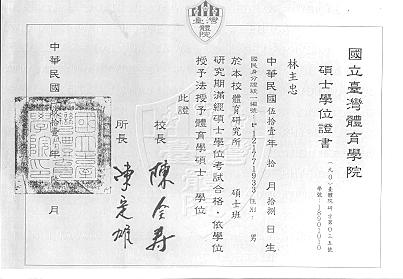 國立臺灣體育學院
碩士學位證書
學號:18901010
林主忠
中華民國伍拾壹年 拾 月 拾捌 日生
國民身分證統一編號 性別:男
於本校體育研究所 碩士班
研究期滿經碩士學位考試合格,依學位
授予法授予體育學碩士 學位
此證
校長 陳全壽
所長 陳定雄
中華民國 月
臺灣
體院